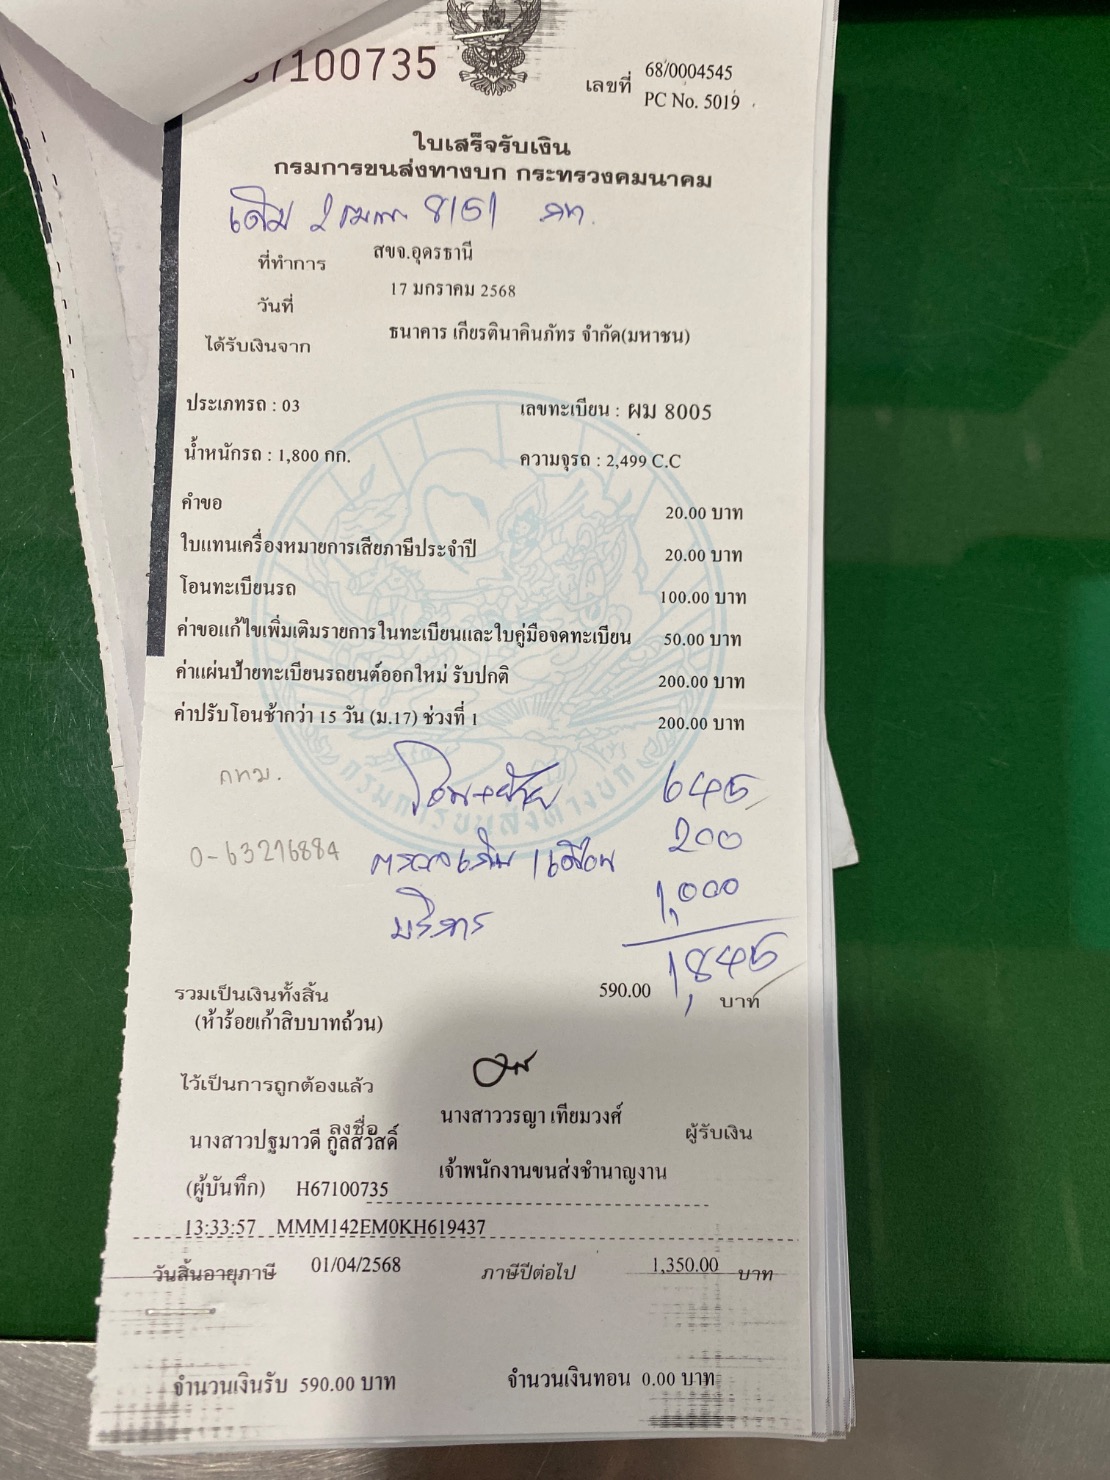 7100735
เลขที่ 68/0004545
PC No. 5019
ใบเสร็จรับเงิน
กรมการขนส่งทางบก กระทรวงคมนาคม
เดิม 2 8151 กท.
ที่ทำการ สขจ.อุดรธานี
วันที่ 17 มกราคม 2568
ได้รับเงินจาก ธนาคาร เกียรตินาคินภัทร จำกัด(มหาชน)
ประเภทรถ : 03 เลขทะเบียน : ผม 8005
น้ำหนักรถ : 1,800 กก. ความจุรถ : 2,499 C.C
คำขอ 20.00 บาท
ใบแทนเครื่องหมายการเสียภาษีประจำปี 20.00 บาท
โอนทะเบียนรถ 100.00 บาท
ค่าขอแก้ไขเพิ่มเติมรายการในทะเบียนและใบคู่มือจดทะเบียน 50.00 บาท
ค่าแผ่นป้ายทะเบียนรถยนต์ออกใหม่ รับปกติ 200.00 บาท
ค่าปรับโอนช้ากว่า 15 วัน (ม.17) ช่วงที่ 1 200.00 บาท
กทม. โอน+ย้าย 645
0-63216884 ตรวจเดิม 1 เดือน 200
บริการ 1,000
1,845
รวมเป็นเงินทั้งสิ้น 590.00 บาท
(ห้าร้อยเก้าสิบบาทถ้วน)
ไว้เป็นการถูกต้องแล้ว
ลงชื่อ นางสาววรญา เทียมวงศ์ ผู้รับเงิน
นางสาวปฐมาวดี กูลสวัสดิ์
เจ้าพนักงานขนส่งชำนาญงาน
(ผู้บันทึก) H67100735
13:33:57 MMM142EM0KH619437
วันสิ้นอายุภาษี 01/04/2568 ภาษีปีต่อไป 1,350.00 บาท
จำนวนเงินรับ 590.00 บาท จำนวนเงินทอน 0.00 บาท
กรมการขนส่งทางบก